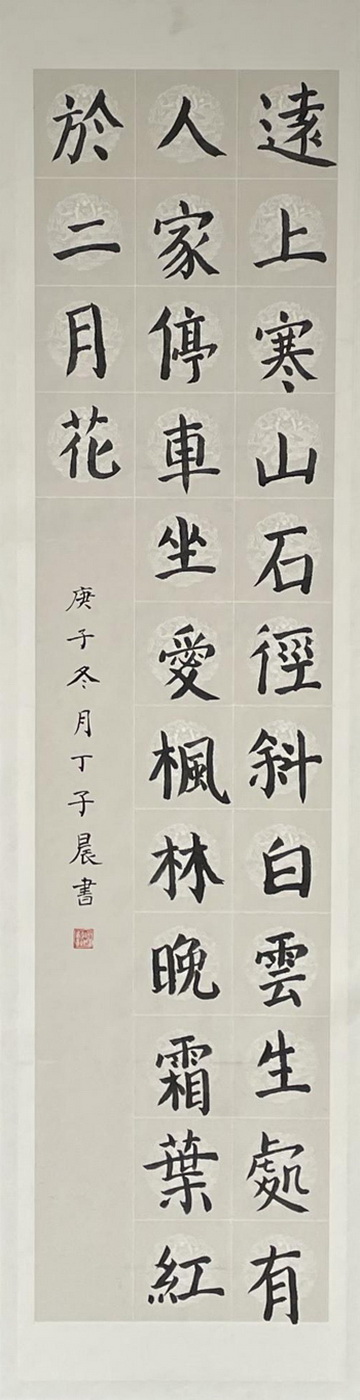 遠上寒山石徑斜白雲生處有
人家停車坐愛楓林晚霜葉紅
於二月花
庚子冬月丁子晨書